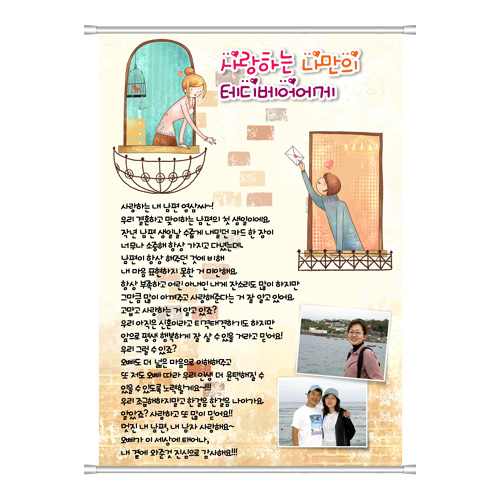 사랑하는 나만의
테디베어에게
사랑하는 내 남편 영삼씨~!
우리 결혼하고 맞이하는 남편의 첫 생일이에요.
작년 남편 생일날 수줍게 내밀던 카드 한 장이
너무나 소중해 항상 가지고 다녔는데,
남편이 항상 해주던 것에 비해
내 마음 표현하지 못한 거 미안해요.
항상 부족하고 어린 아내인 내게 잔소리도 많이 하지만
그만큼 많이 아껴주고 사랑해준다는 거 잘 알고 있어요.
고맙고 사랑하는 거 알고 있죠?
우리 아직은 신혼이라고 티격태격하기도 하지만
앞으로 평생 행복하게 잘 살 수 있을 거라고 믿어요!
우리 그럴 수 있죠?
오빠도 더 넓은 마음으로 이해해주고
또 저도 오빠 따라 우리 인생 더 윤택해질 수
있을 수 있도록 노력할게요~!!!
우리 조급해하지말고 한걸음 한걸음 나아가요.
알았죠? 사랑하고 또 많이 믿어요!!
멋진 내 남편, 내 남자 사랑해요~
오빠가 이 세상에 태어나,
내 곁에 와준것 진심으로 감사해요!!!